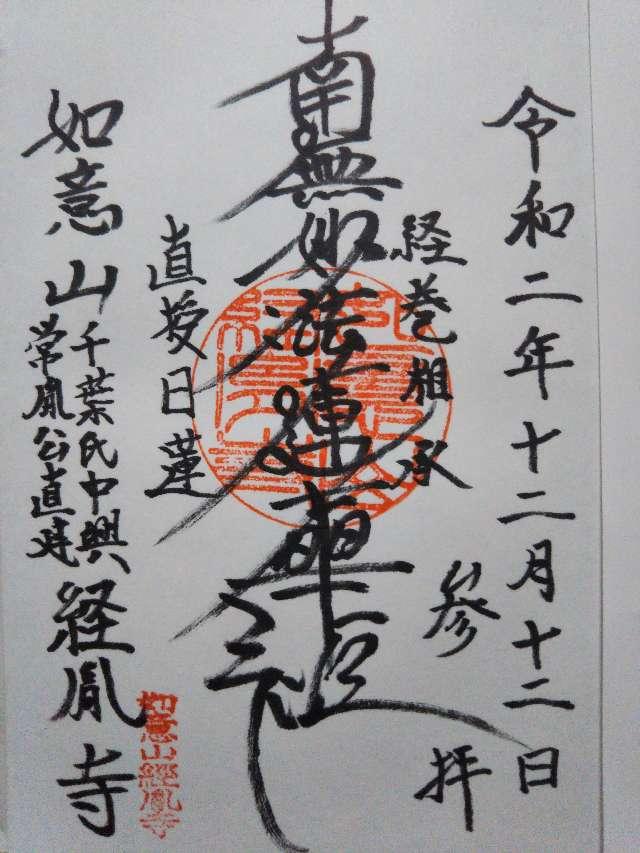 令和二年十二月十二日
参拝
経巻相承
南無妙法蓮華経
直授日蓮
如意山
千葉氏中興
常胤公直建
経胤寺
如意山經胤寺